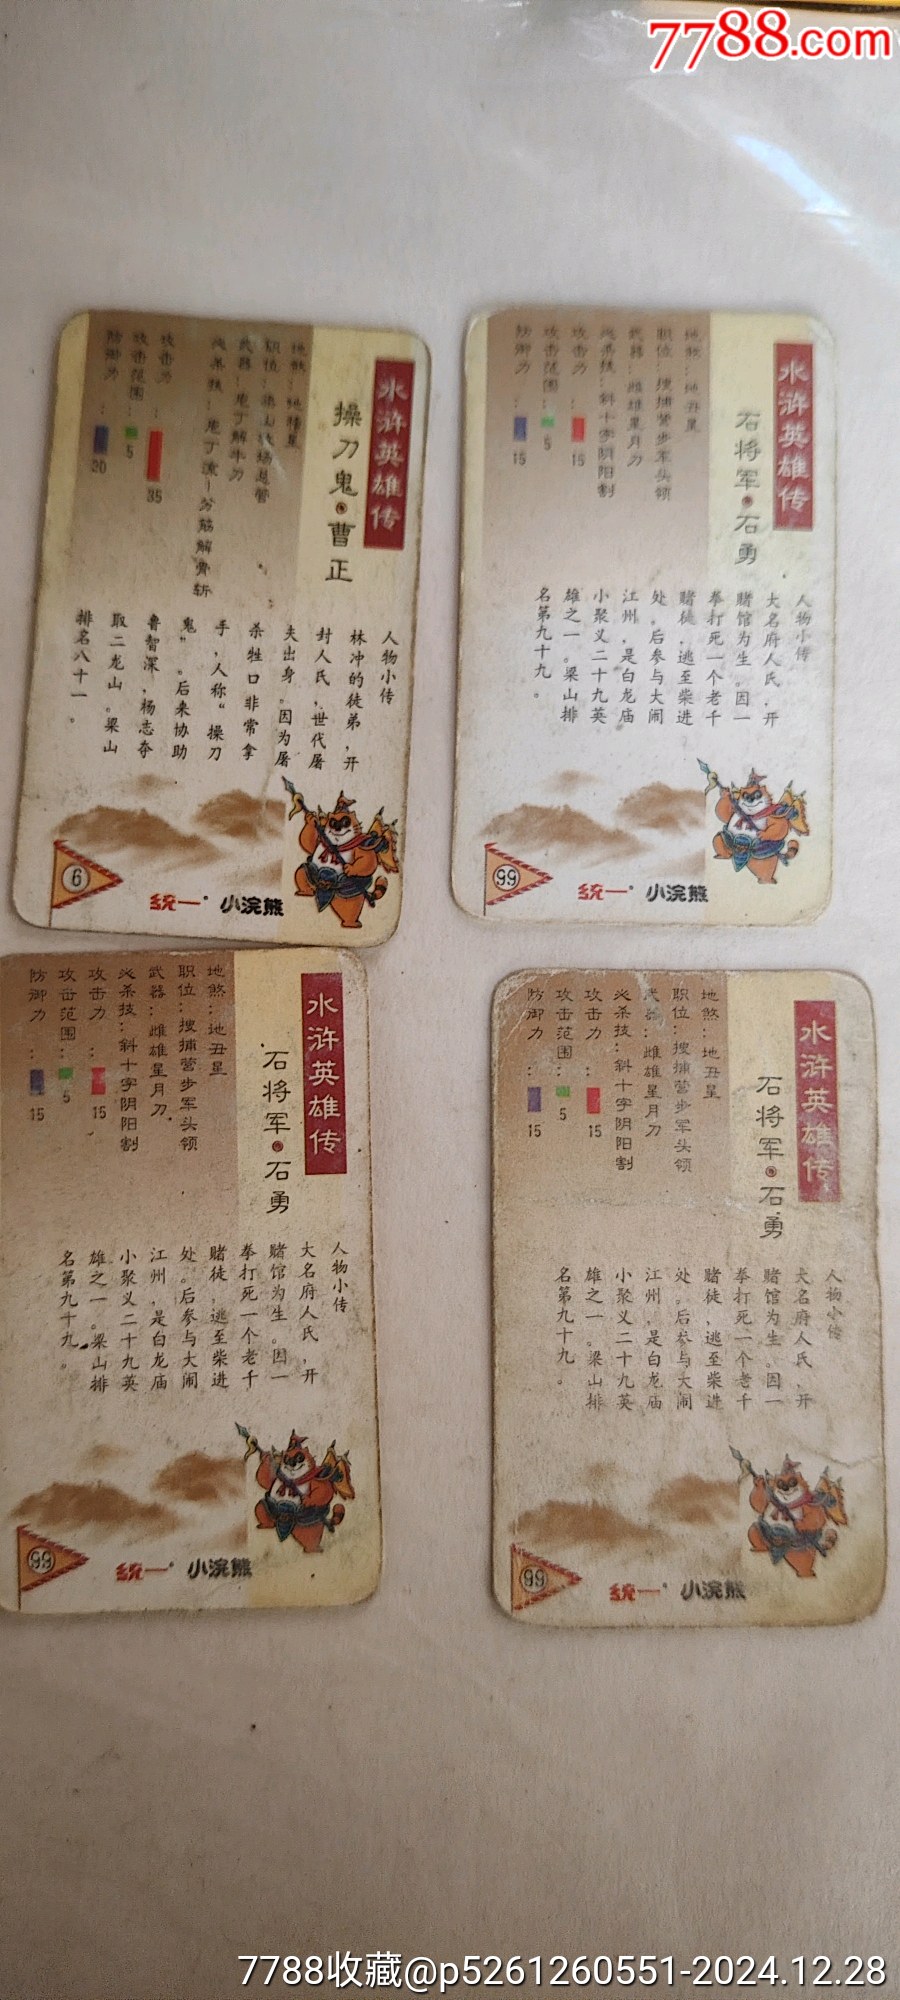 7788.com
水浒英雄传
操刀鬼·曹正
地煞：地稽星
职位：梁山牧场总管
武器：庖丁解牛刀
必杀技：庖丁流—分筋解骨斩
攻击力：35
攻击范围：5
防御力：20
人物小传
林冲的徒弟，开
封人氏，世代屠
夫出身。因为屠
杀牲口非常拿
手，人称“操刀
鬼”。后来协助
鲁智深，杨志夺
取二龙山。梁山
排名八十一。
9
统一 小浣熊
水浒英雄传
石将军·石勇
地煞：地丑星
职位：搜捕营步军头领
武器：雌雄星月刀
必杀技：斜十字阴阳割
攻击力：15
攻击范围：5
防御力：15
人物小传
大名府人氏，开
赌馆为生。因一
拳打死一个老千
赌徒，逃至柴进
处。后参与大闹
江州，是白龙庙
小聚义二十九英
雄之一。梁山排
名第九十九。
99
统一 小浣熊
水浒英雄传
石将军·石勇
地煞：地丑星
职位：搜捕营步军头领
武器：雌雄星月刀
必杀技：斜十字阴阳割
攻击力：15
攻击范围：5
防御力：15
人物小传
大名府人氏，开
赌馆为生。因一
拳打死一个老千
赌徒，逃至柴进
处。后参与大闹
江州，是白龙庙
小聚义二十九英
雄之一。梁山排
名第九十九。
99
统一 小浣熊
水浒英雄传
石将军·石勇
地煞：地丑星
职位：搜捕营步军头领
武器：雌雄星月刀
必杀技：斜十字阴阳割
攻击力：15
攻击范围：5
防御力：15
人物小传
大名府人氏，开
赌馆为生。因一
拳打死一个老千
赌徒，逃至柴进
处。后参与大闹
江州，是白龙庙
小聚义二十九英
雄之一。梁山排
名第九十九。
99
统一 小浣熊
7788收藏@p5261260551-2024.12.28